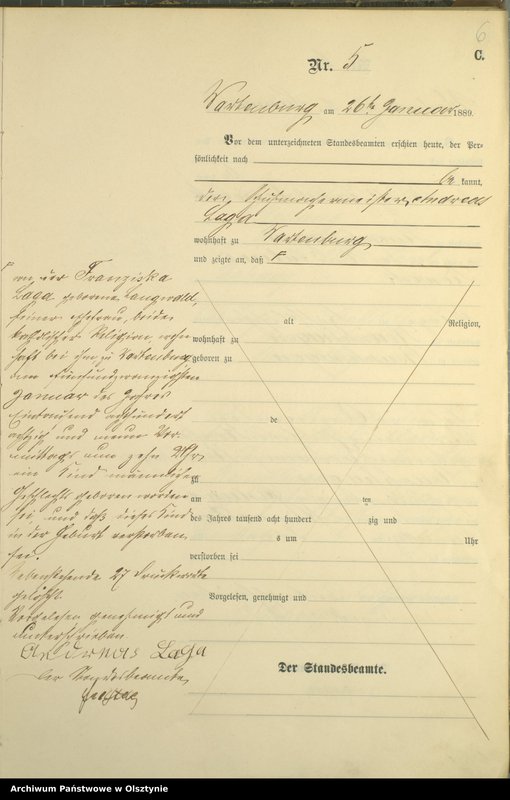 6
C.
Nr. 5
Wartenburg am 26ten Januar 1889.
Vor dem unterzeichneten Standesbeamten erschien heute, der Per-
sönlichkeit nach
be kannt,
den Schuhmachermeister Andreas
Laga
wohnhaft zu Wartenburg
und zeigte an, daß
von der Franziska
Laga geborene Langwald,
seiner Ehefrau, beide
katholischer Religion, wohn-
haft bei ihm zu Wartenburg
am fünfundzwanzigsten
Januar des Jahres
Eintausend achthundert
achtzig und neun Vor-
mittags um zehn Uhr
ein Kind männlichen
Geschlechts geboren worden
sei und daß dieses Kind
in der Geburt verstorben
sei.
Nebenstehende 27 Druckworte
gelöscht.
Vorgelesen genehmigt und
unterschrieben
Andreas Laga
Der Standesbeamte
alt Religion,
wohnhaft zu
geboren zu
de
zu
am ten
des Jahres tausend acht hundert zig und
s um Uhr
verstorben sei
Vorgelesen, genehmigt und
Der Standesbeamte.
Archiwum Państwowe w Olsztynie